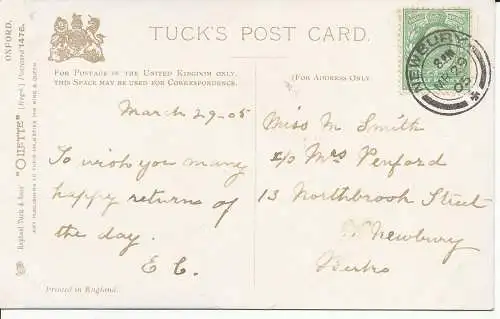 TUCK'S POST CARD.
FOR POSTAGE IN THE UNITED KINGDOM ONLY,
THIS SPACE MAY BE USED FOR CORRESPONDENCE.
(FOR ADDRESS ONLY.
March 29-05
To wish you many
happy returns of
the day.
E C.
Printed in England.
Miss M Smith
c/o Mrs Penford
13 Northbrook Street
Newbury
Berks
NEWBURY
05
OXFORD.
Raphael Tuck & Sons' "OILETTE" [Regd.] Postcard 1476.
ART PUBLISHERS TO THEIR MAJESTIES THE KING & QUEEN.